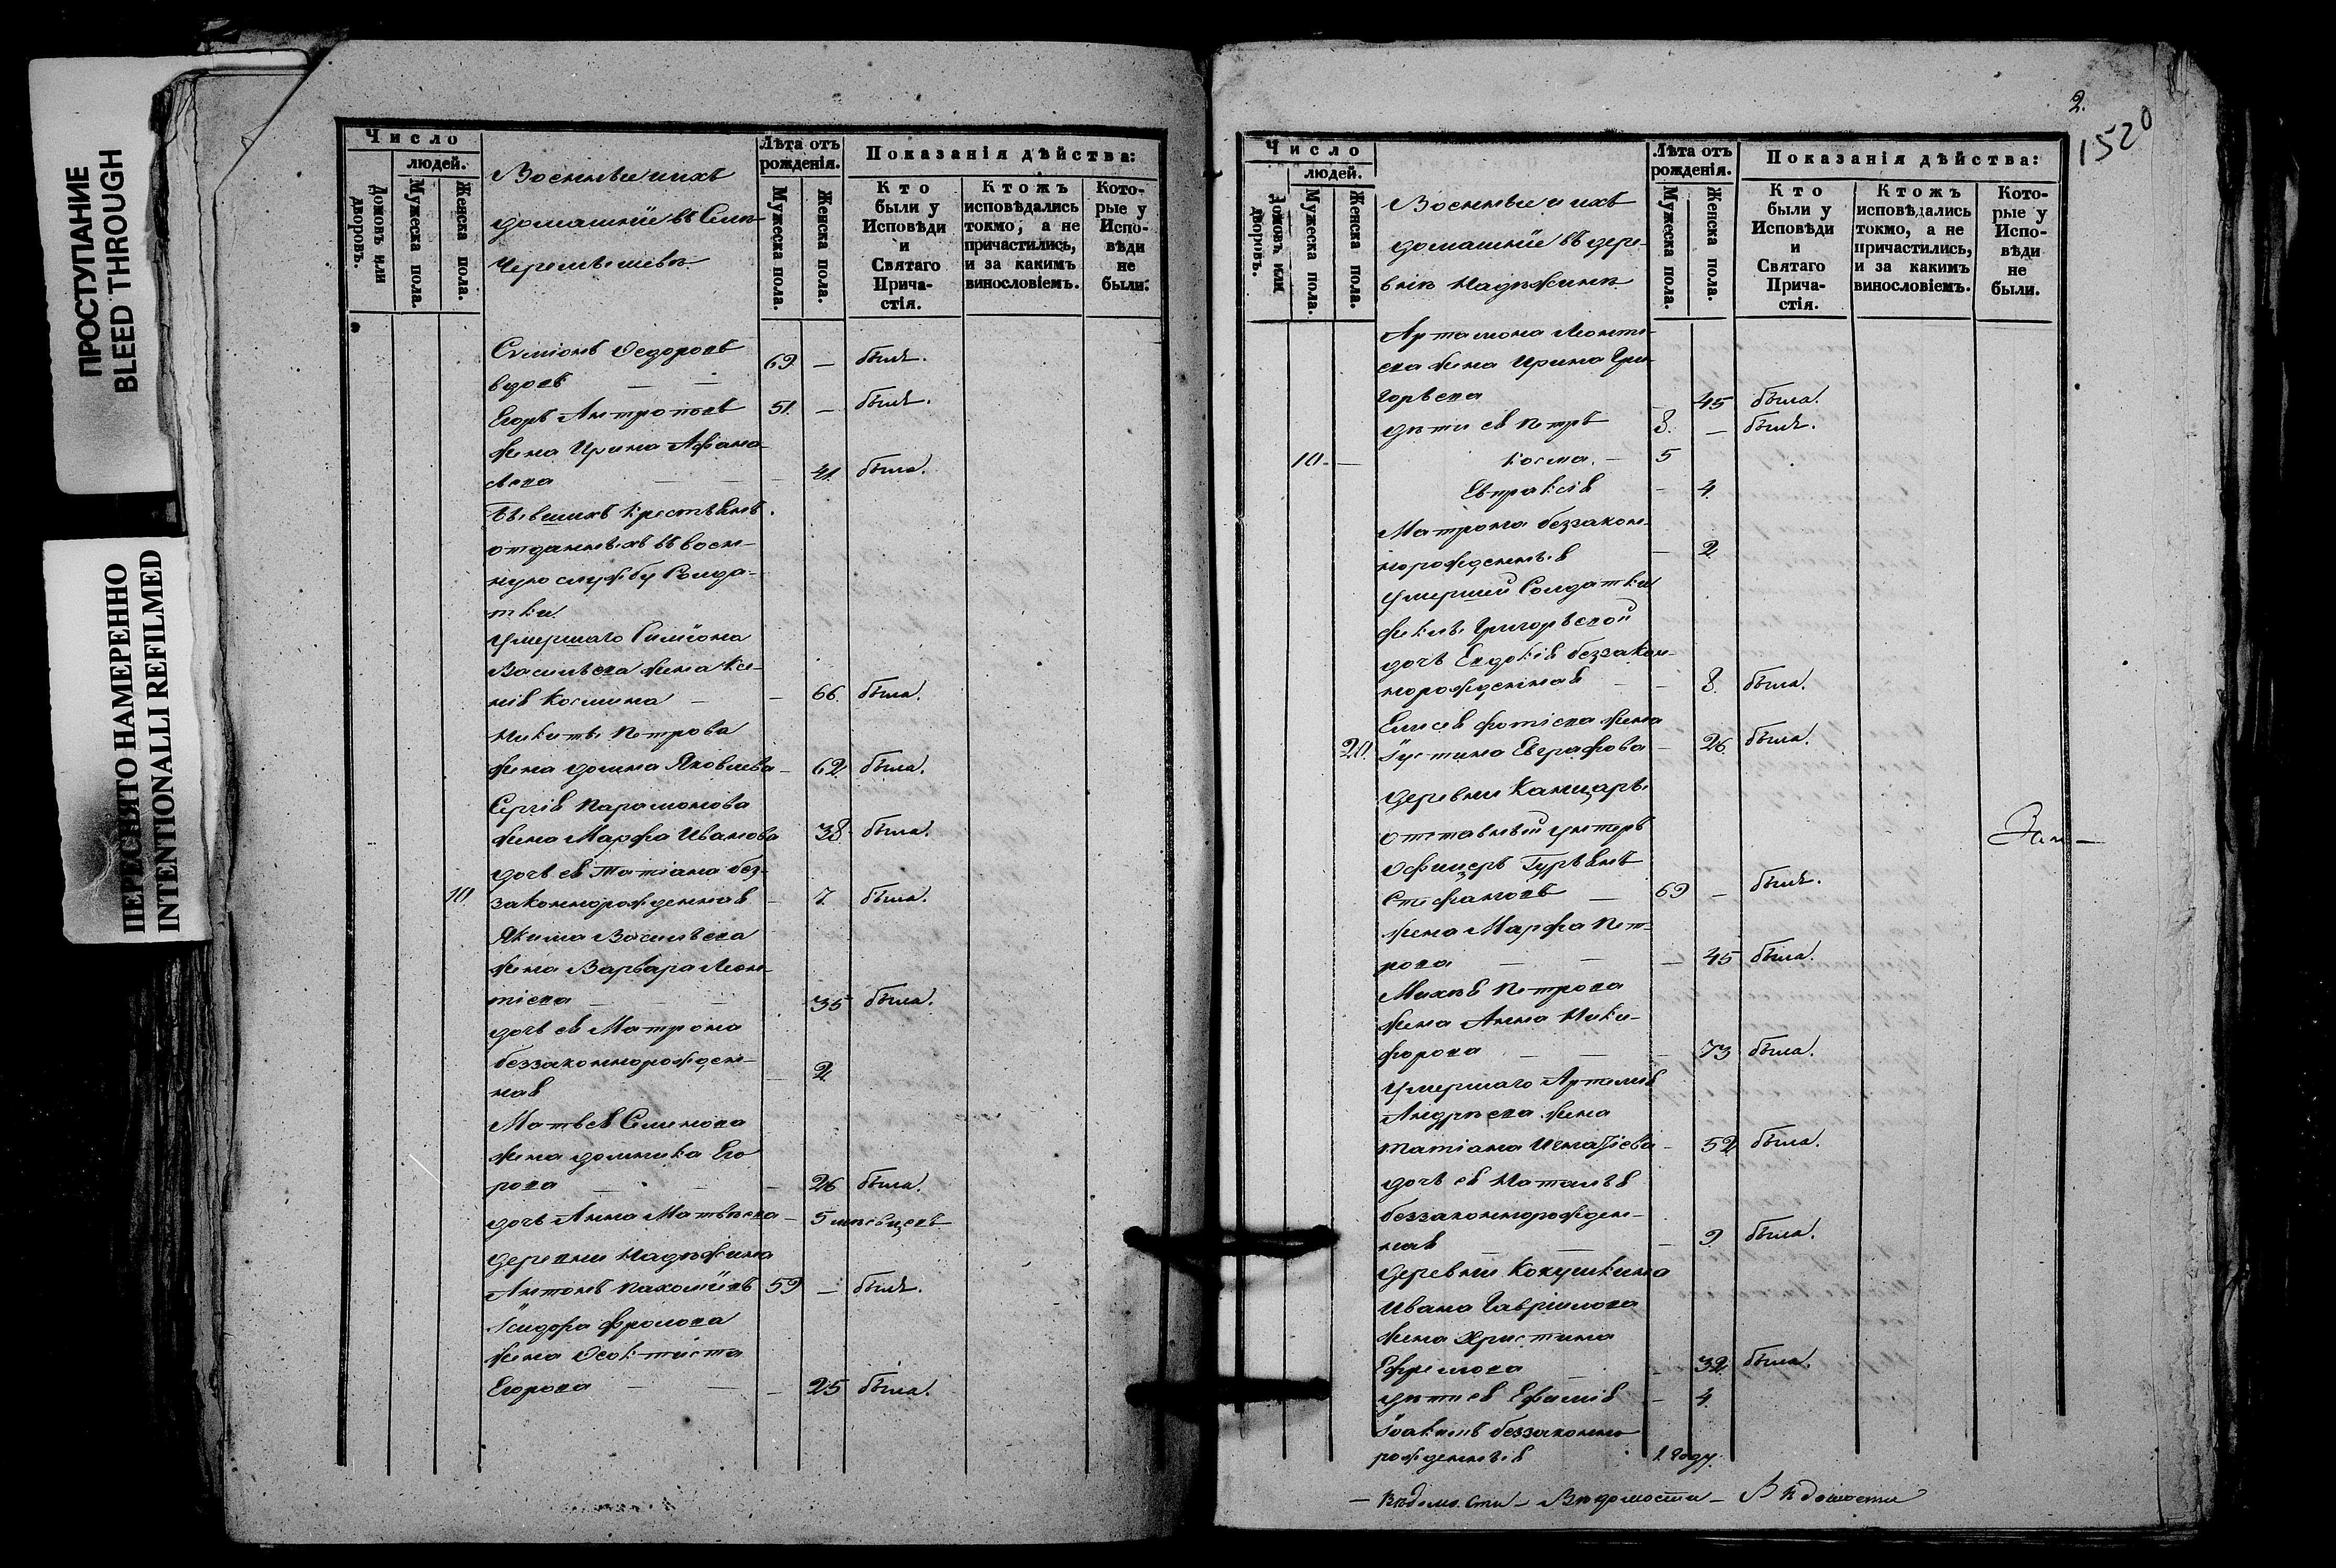 ПРОСТУПАНИЕ
BLEED THROUGH
ПЕРЕСНЯТО НАМЕРЕННО
INTENTIONALLI REFILMED
Число
людей.
Домовъ или дворовъ.
Мужеска пола.
Женска пола.
Военные и ихъ
домашнїе въ Селѣ
Лѣта отъ рожденія.
Мужеска пола.
Женска пола.
Показанія дѣйства:
Кто были у Исповѣди и Святаго Причастія.
Ктожъ исповѣдались токмо, а не причастились, и за какимъ винословіемъ.
Которые у Исповѣди не были.
Сѵмїонъ Ѳедоровъ
вдовъ — — 69 — былъ.
Егоръ Антроповъ 51. — былъ.
жена Ирина Афана-
сьева — — — 41. была.
Бывшихъ крестьянъ
отданныхъ въ воен-
ную службу Солда-
тки
Умершаго Симїона
Васильева жена Ксе-
нія Космина — — 66. была.
Никиты Петрова
жена Домна Яковлева — 62. была.
Сергія Парамонова
жена Марфа Иванова 38. была.
дочь ея Татіана без-
10. законнорожденная — 7. была.
Якима Васильева
жена Варвара Леон-
тіева — — — 35 была.
дочь ея Матрона
беззаконнорожден-
ная — 2.
Матвея Семенова
жена Домника Его
рова — — — 26 была.
дочь Анна Матвѣева — 5 мѣсяцевъ
Деревни Надѣжина
Антонъ Пахомїевъ 59 — былъ.
Ісидора Фролова
жена Ѳеоктиста
Егорова — — — 25 была.
2.
1520
Число
людей.
Домовъ или дворовъ.
Мужеска пола.
Женска пола.
Военные и ихъ
домашнїе въ дере-
внѣ Надѣжинѣ
Лѣта отъ рожденія.
Мужеска пола.
Женска пола.
Показанія дѣйства:
Кто были у Исповѣди и Святаго Причастія.
Ктожъ исповѣдались токмо, а не причастились, и за какимъ винословіемъ.
Которые у Исповѣди не были.
Артамона Леонть-
ева жена Ирина Гри-
горьева 45 была.
дѣти ея Петръ 8. — былъ.
10. — Косма. — 5
Евпраксія — 4.
Матрона беззакон-
норожденныя — 2.
Умершей Солдатки
Григорьевой
дочь Евдокія беззакон-
норожденная — — 8. была.
Елисея Фотіева жена
20. Іустина Евграфова — 26. была.
Деревни
отставный унтеръ
Офицеръ Гурьянъ
Стефановъ — 69 — былъ.
жена Марфа Пет-
рова — — — 45 была.
Михѣя Петрова
жена Анна Ники-
форова — — — 73 была.
Умершаго Артемія
Андрѣева жена
Татіана Игнатїева — 52 была.
дочь ея Наталья
беззаконнорожден-
ная — — — 9. была.
Деревни Кокушкина
Ивана Гавріилова
жена Христина
Ефремова — — 32 была.
дѣти ея Ефимія — 4.
Їоакимъ беззаконно
рожденныя 1 году.
— Вѣдомости — Вѣдомости — Вѣдомости